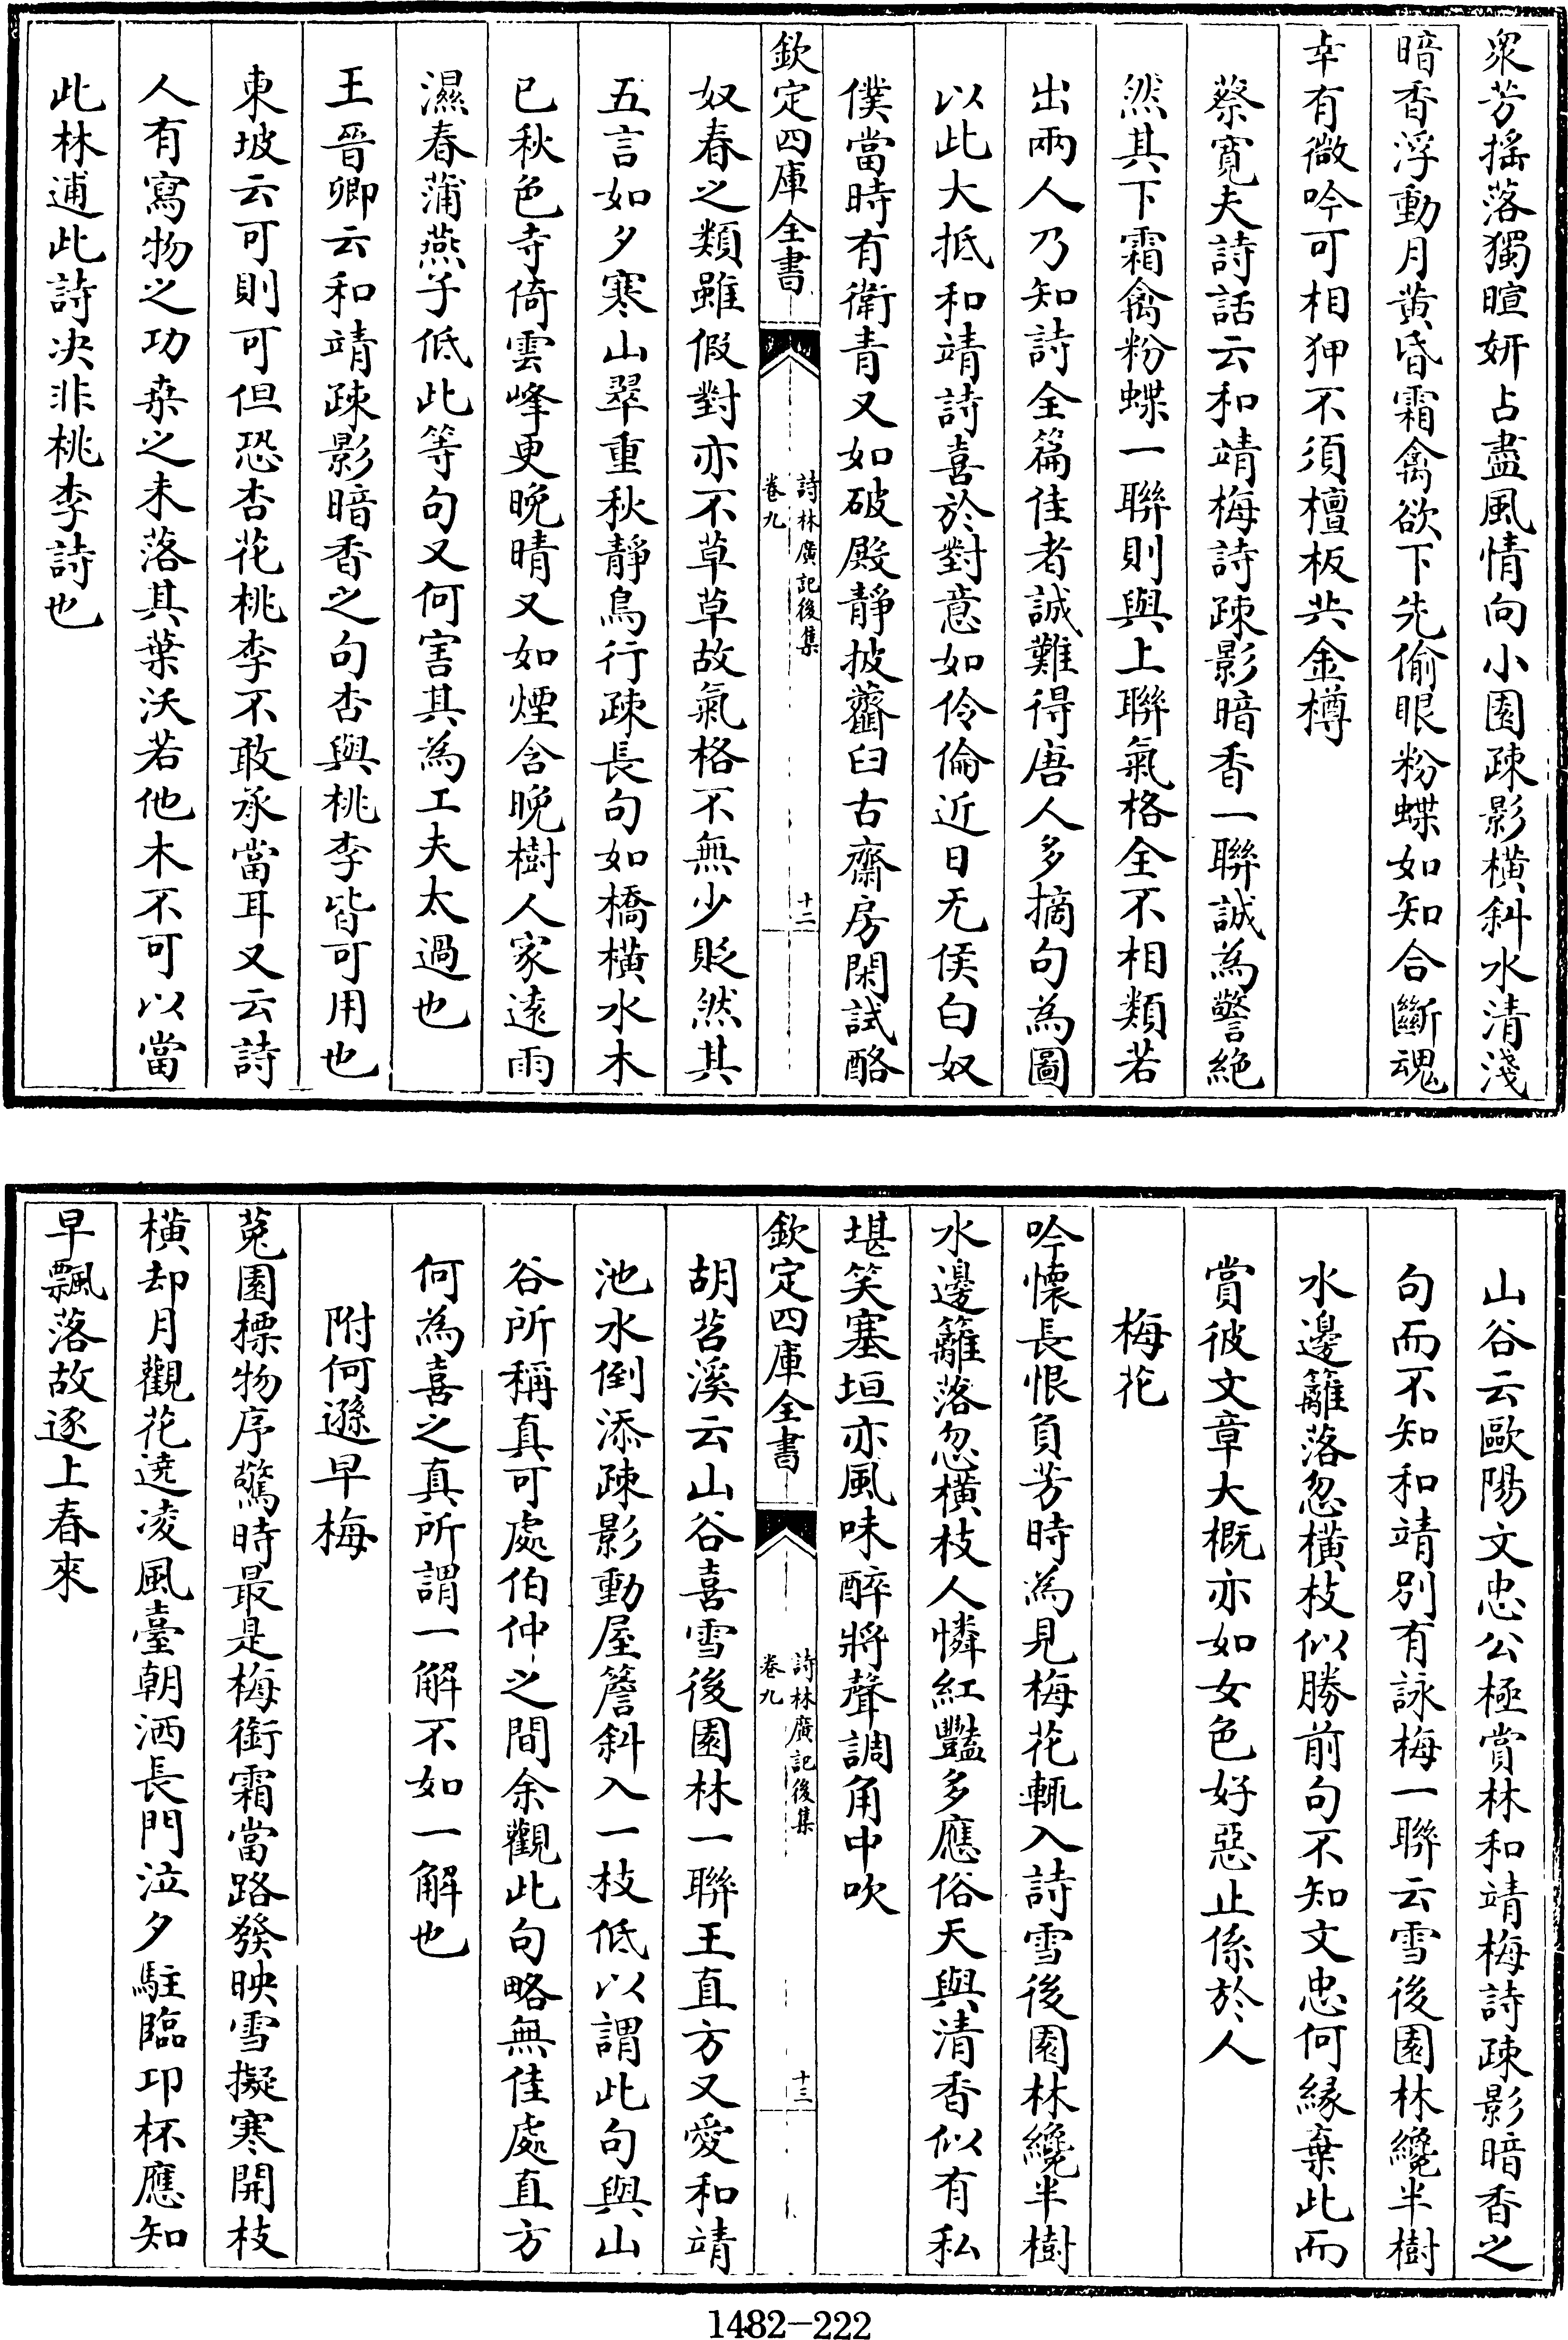 衆芳揺落獨暄妍占盡風情向小園疎影橫斜水清淺
暗香浮動月黄昏霜禽欲下先偷眼粉蝶如知合斷魂
幸有微吟可相狎不須檀板共金樽
蔡寛夫詩話云和靖梅詩疎影暗香一聯誠為警絶
然其下霜禽粉蝶一聯則與上聯氣格全不相類若
出兩人乃知詩全篇佳者誠難得唐人多摘句為圖
以此大抵和靖詩喜於對意如伶倫近日无侯白奴
僕當時有衛青又如破殿靜披虀臼古齋房閑試酪
欽定四庫全書
詩林廣記後集
卷九
十二
奴春之類雖假對亦不草草故氣格不無少貶然其
五言如夕寒山翠重秋靜鳥行疎長句如橋橫水木
已秋色寺倚雲峰更晚晴又如煙含晚樹人家逺雨
濕春蒲燕子低此等句又何害其為工夫太過也
王晉卿云和靖疎影暗香之句杏與桃李皆可用也
東坡云可則可但恐杏花桃李不敢承當耳又云詩
人有寫物之功桒之未落其葉沃若他木不可以當
此林逋此詩决非桃李詩也
山谷云歐陽文忠公極賞林和靖梅詩疎影暗香之
句而不知和靖別有詠梅一聯云雪後園林纔半樹
水邊籬落忽橫枝似勝前句不知文忠何縁棄此而
賞彼文章大概亦如女色好惡止係於人
梅花
吟懷長恨負芳時為見梅花輒入詩雪後園林纔半樹
水邊籬落忽橫枝人憐紅豔多應俗天與清香似有私
堪笑塞垣亦風味醉將聲調角中吹
欽定四庫全書
詩林廣記後集
卷九
十三
胡苕溪云山谷喜雪後園林一聯王直方又愛和靖
池水倒添疎影動屋簷斜入一枝低以謂此句與山
谷所稱真可處伯仲之間余觀此句略無佳處直方
何為喜之真所謂一解不如一解也
附何遜早梅
菟園摽物序驚時最是梅銜霜當路發映雪擬寒開枝
橫却月觀花遶凌風臺朝洒長門泣夕駐臨卭杯應知
早飄落故逐上春來
1482-222